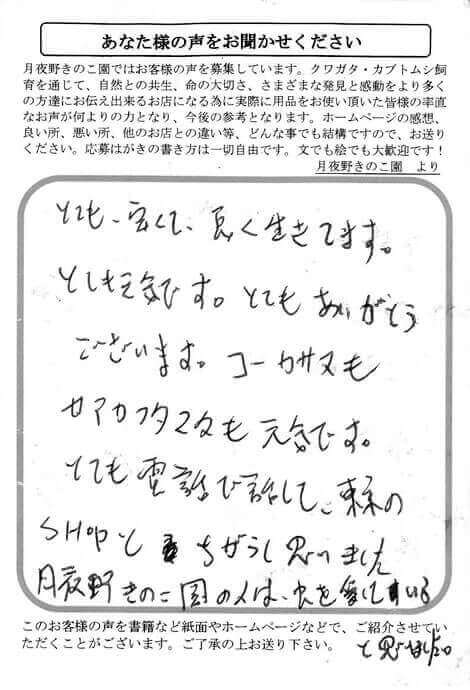 あなた様の声をお聞かせください
月夜野きのこ園ではお客様の声を募集しています。クワガタ・カブトムシ飼
育を通じて、自然との共生、命の大切さ、さまざまな発見と感動をより多く
の方達にお伝え出来るお店になる為に実際に用品をお使い頂いた皆様の率直
なお声が何よりの力となり、今後の参考となります。ホームページの感想、
良い所、悪い所、他のお店との違い等、どんな事でも結構ですので、お送り
ください。応募はがきの書き方は一切自由です。文でも絵でも大歓迎です！
月夜野きのこ園　より
とても、安くて、良く生きてます。
とても元気です。とてもありがとう
ございます。コーカサスも
も元気です。
とても電話で話して、東京の
SHOPと ちがうし思いました
月夜野きのこ園の人は、虫を愛している
と思いました
このお客様の声を書籍など紙面やホームページなどで、ご紹介させてい
ただくことがございます。ご了承の上お送り下さい。